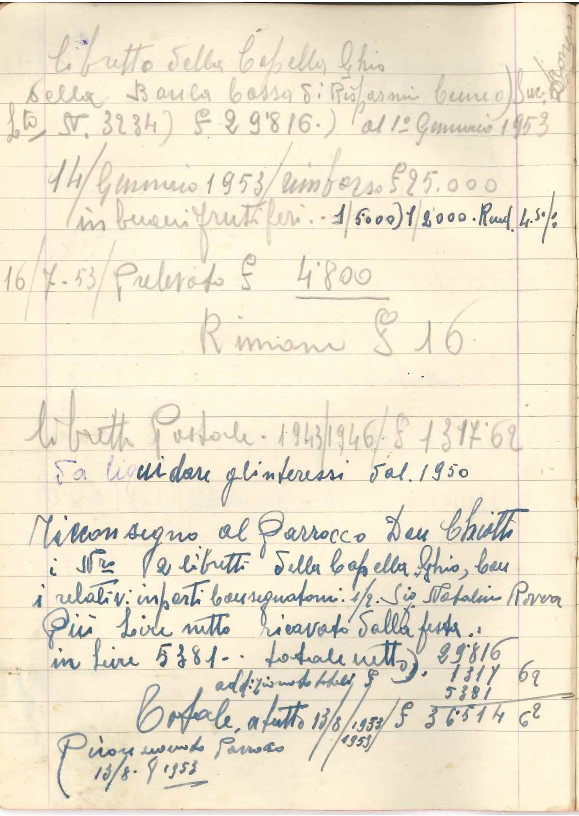 Libretto della Capella Ghio
della Banca Cassa di Risparmi Cuneo) Suc.
N. 3234) £ 29816.) al 1º Gennaio 1953
14/Gennaio 1953/ rimborso £ 25.000
in buoni fruttiferi.. 1/5000) 1/2000. Rend. 4.50%
16/7-53/ Prelevato £ 4'800
Rimane £ 16
Libretto Postale. 1943/1946/ £ 1317'62
Da liquidare gl'interessi dal. 1950
Riconsegno al Parroco Don Chiotti
i Nro (2 libretti della Capella Ghio, con
i relativi importi consegnatomi. Sig. Natalino Rovera
Più Lire netto ricavato dalla festa..
in Lire 5381.. totale netto). 29816
£ 1317 62
5381
Totale, a tutto 13/8/1953/ £ 36514 62
1953/
Parroco
13/8. 1953